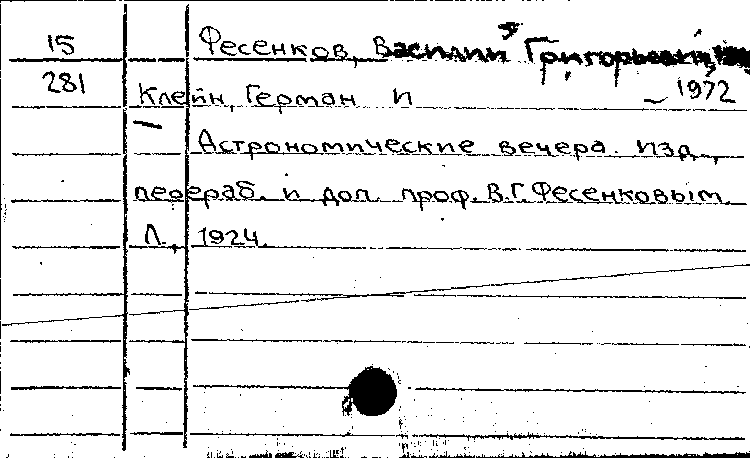 15 Фесенков, Василий Григорьевич,
281 Клейн, Герман И – 1972
Астрономические вечера. Изд.,
перераб. и доп. проф. В.Г. Фесенковым.
Л., 1924.